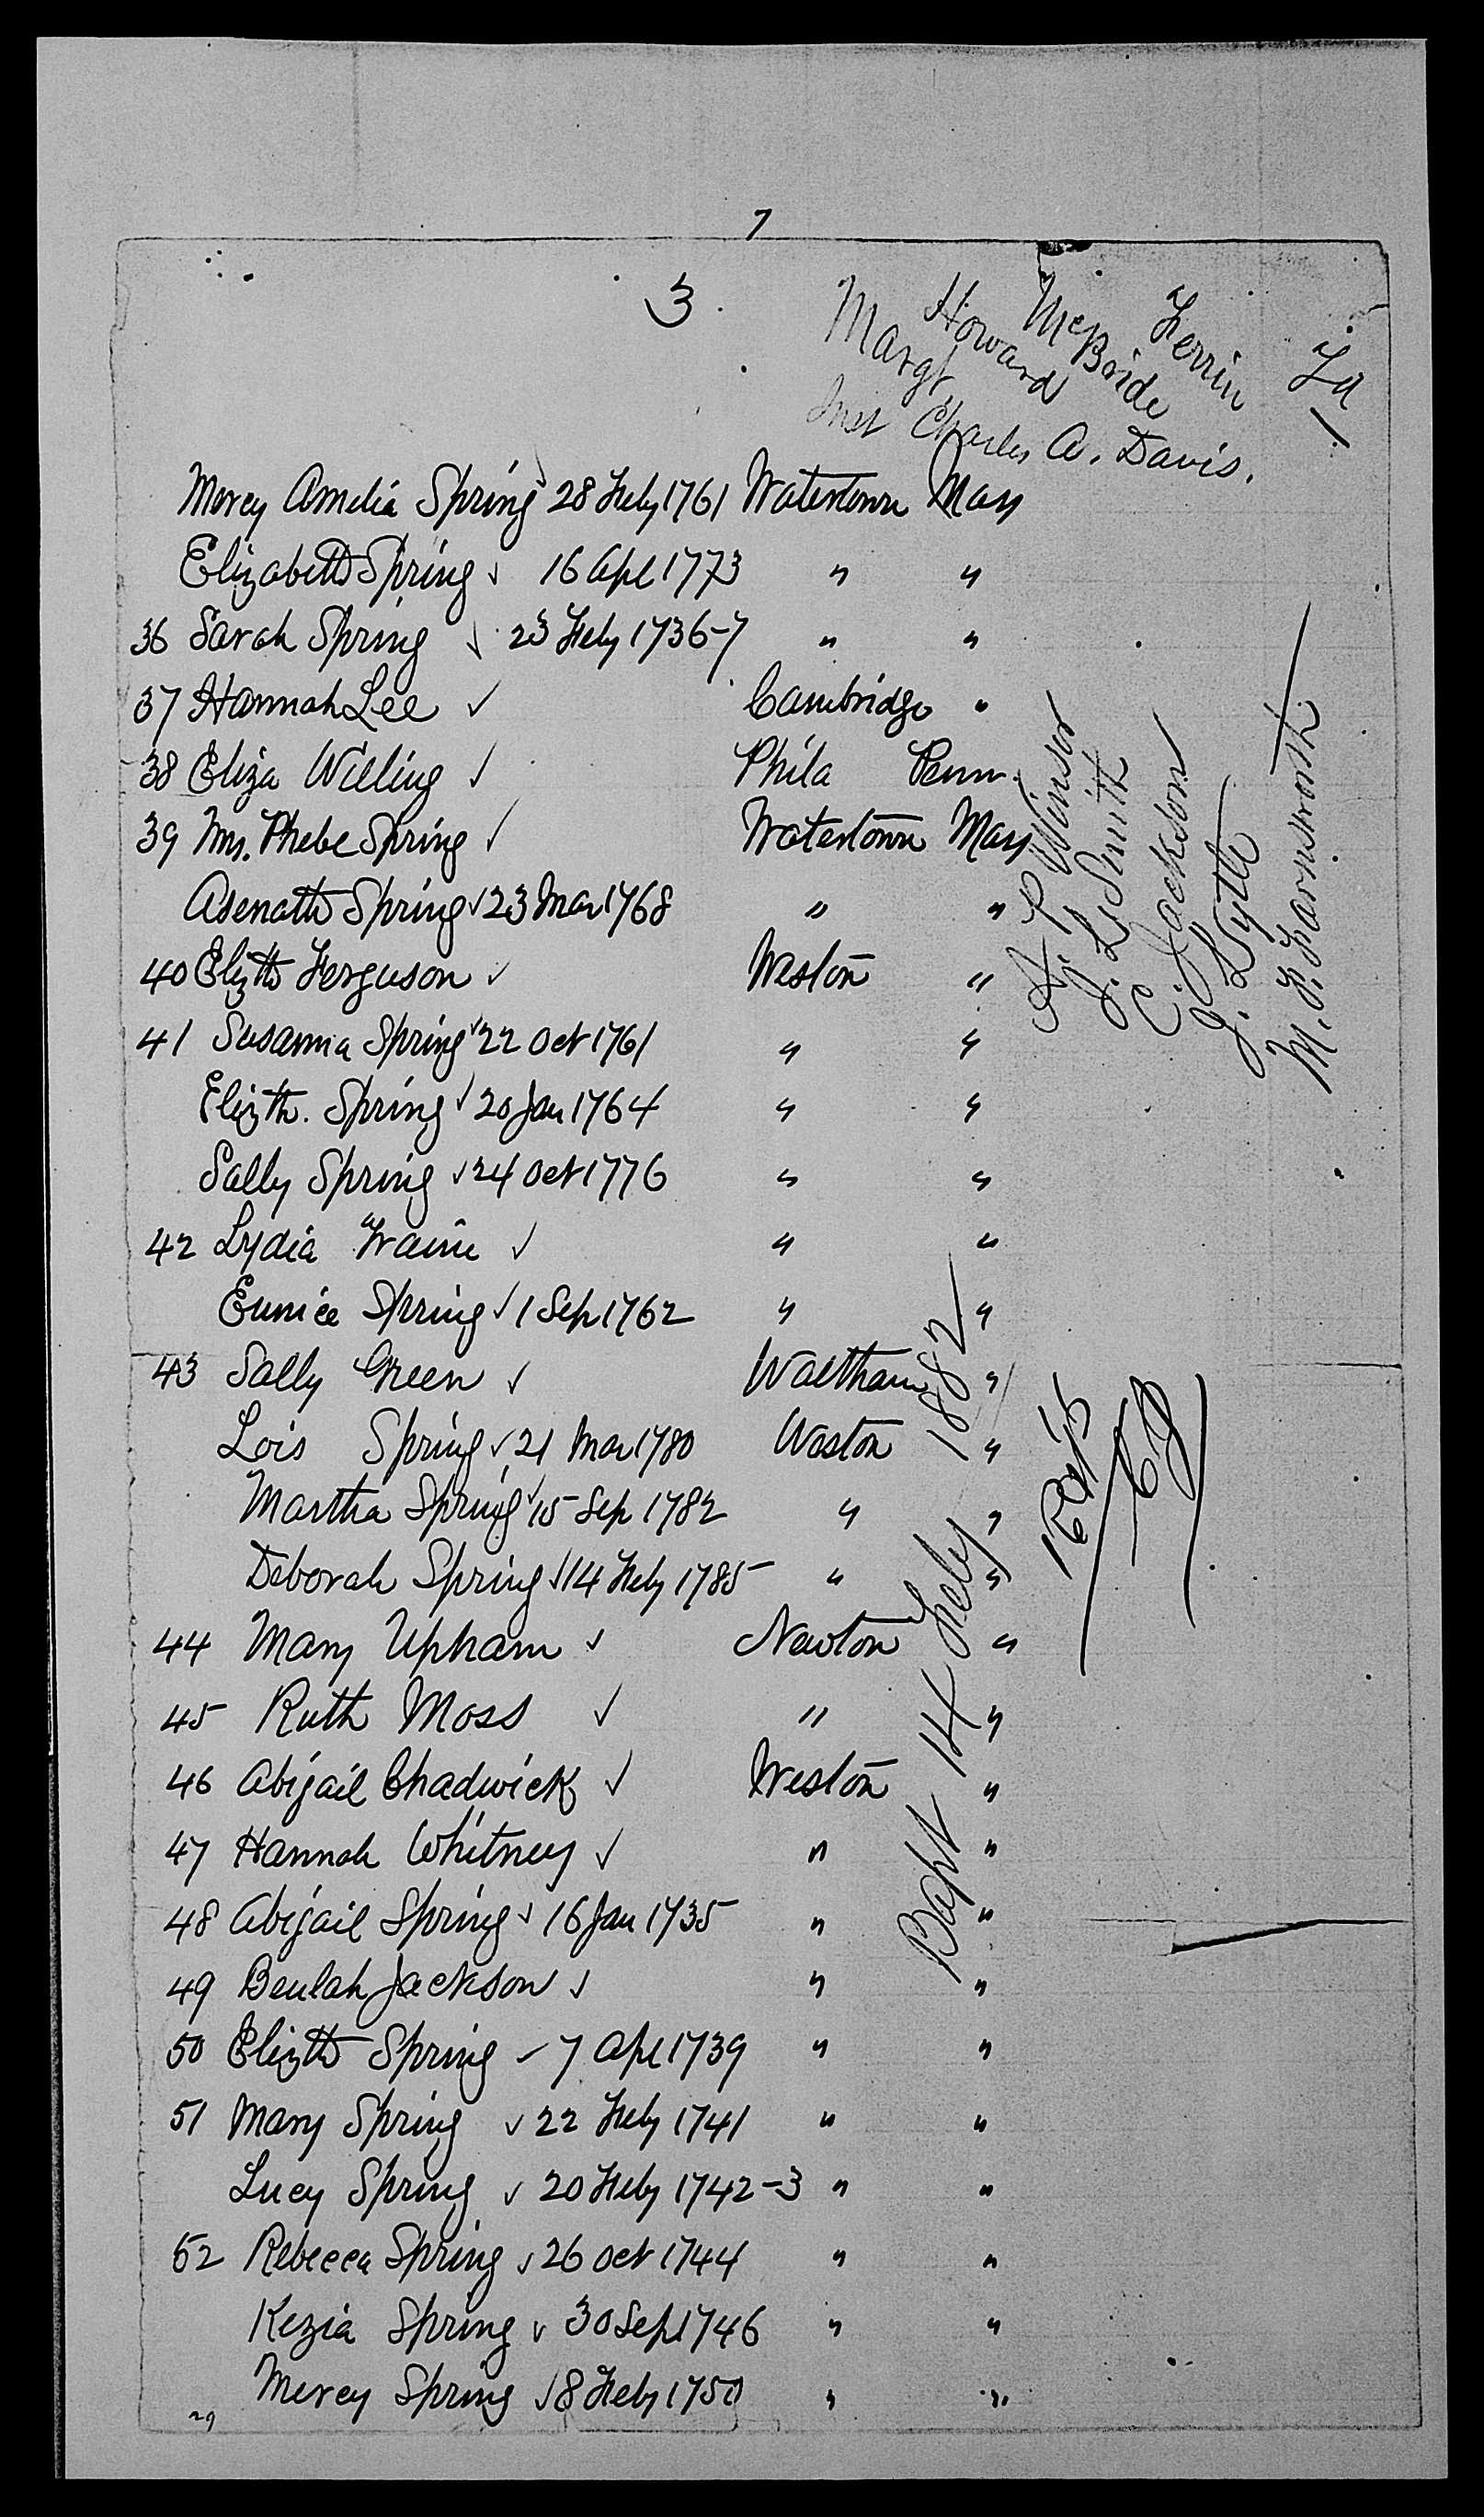 7
3.
Margt Howard McBride Ferrin La
Inst Charles A. Davis.
Mercy Amelia Spring 28 Feby 1761 Watertown Mass
Elizabeth Spring ✓ 16 Apl 1773 " "
36 Sarah Spring ✓ 23 Feby 1736-7 " "
37 Hannah Lee ✓ Cambridge "
38 Eliza Willing ✓ Phila Penn.
39 Mrs. Phebe Spring ✓ Watertown Mass
Asenath Spring ✓ 23 Mar 1768 " "
40 Elizth Ferguson ✓ Weston "
41 Susanna Spring ✓ 22 Oct 1761 " "
Elizth. Spring ✓ 20 Jan 1764 " "
Sally Spring ✓ 24 Oct 1776 " "
42 Lydia Train ✓ " "
Eunice Spring ✓ 1 Sep 1762 " "
43 Sally Green ✓ Waltham "
Lois Spring ✓ 21 Mar 1780 Weston "
Martha Spring ✓ 15 Sep 1782 " "
Deborah Spring ✓ 14 Feby 1785 " "
44 Mary Upham ✓ Newton "
45 Ruth Moss ✓ " "
46 Abigail Chadwick ✓ Weston "
47 Hannah Whitney ✓ " "
48 Abigail Spring ✓ 16 Jan 1735 " "
49 Beulah Jackson ✓ " "
50 Elizth Spring ✓ 7 Apl 1739 " "
51 Mary Spring ✓ 22 Feby 1741 " "
Lucy Spring ✓ 20 Feby 1742-3 " "
52 Rebecca Spring ✓ 26 Oct 1744 " "
Kezia Spring ✓ 30 Sep 1746 " "
Mercy Spring ✓ 8 Feby 1750 " "
29
A. P. Winsor
J. L. Smith
C. Jackson
J. Lytle
M. F. Farnsworth
Bapt 14 Feby 1882